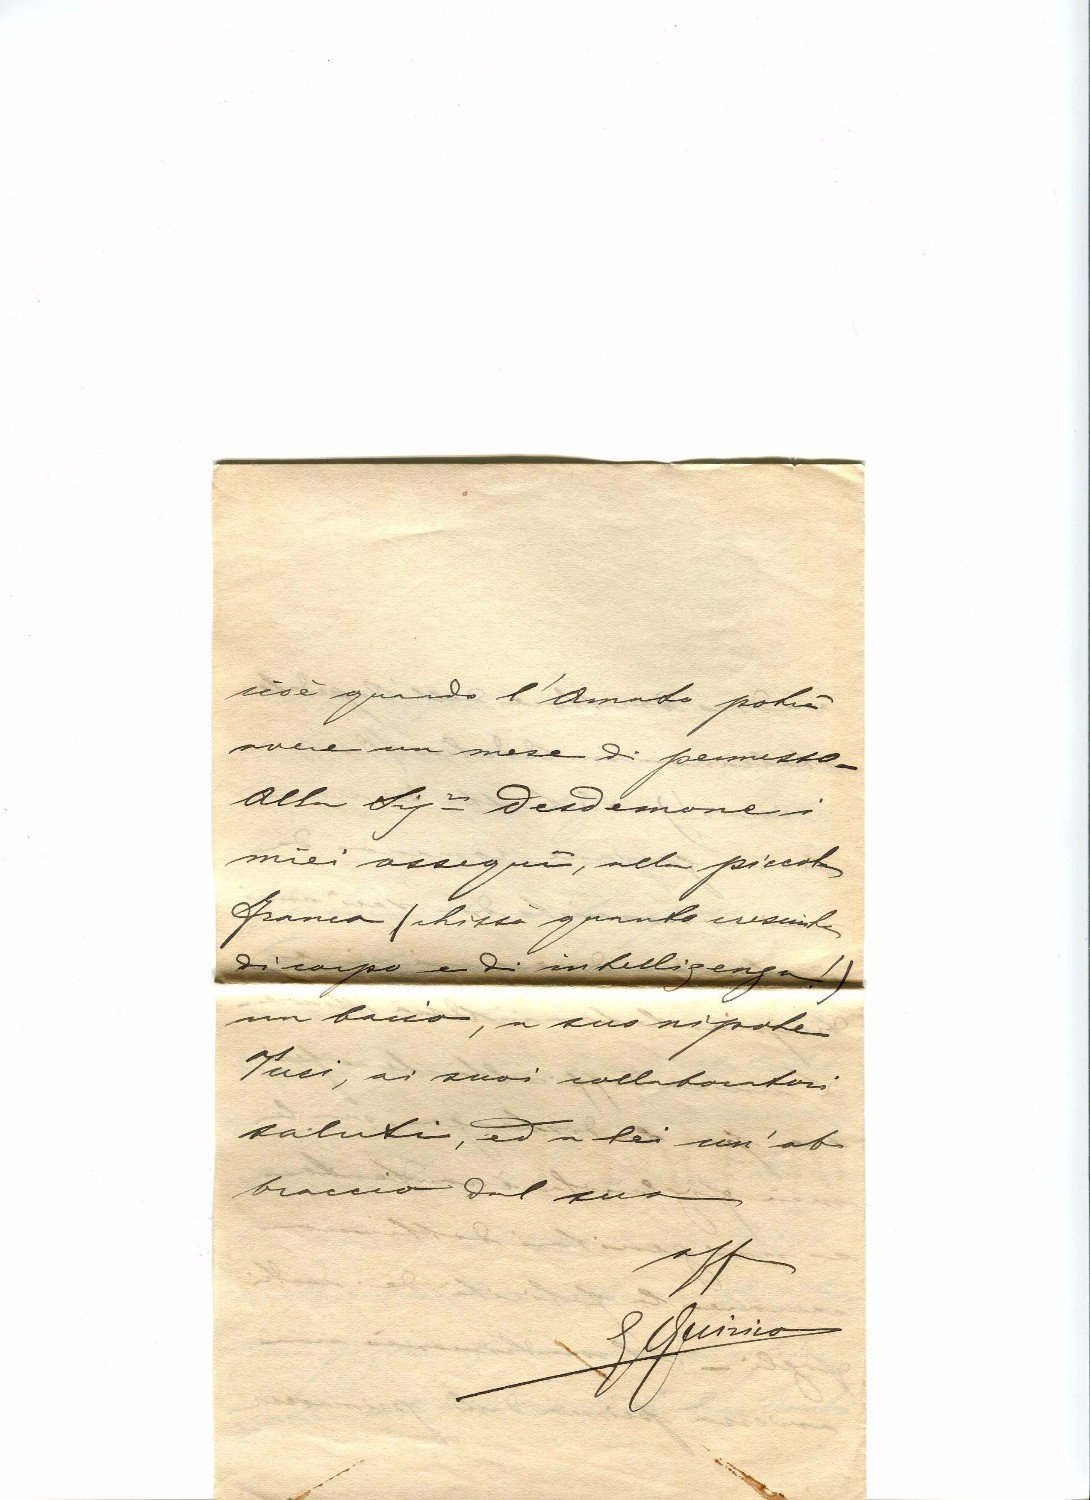 cioè quando l'Amato potrà
avere un mese di permesso-
Alla Sig.ra Desdemone i
miei ossequii, alla piccola
Franca (chissà quanto cresciuta
di corpo e di intelligenza!)
un bacio, a suo nipote
Tuci, ai suoi collaboratori
saluti, ed a lei un'ab
braccio dal suo
aff
G Quirico